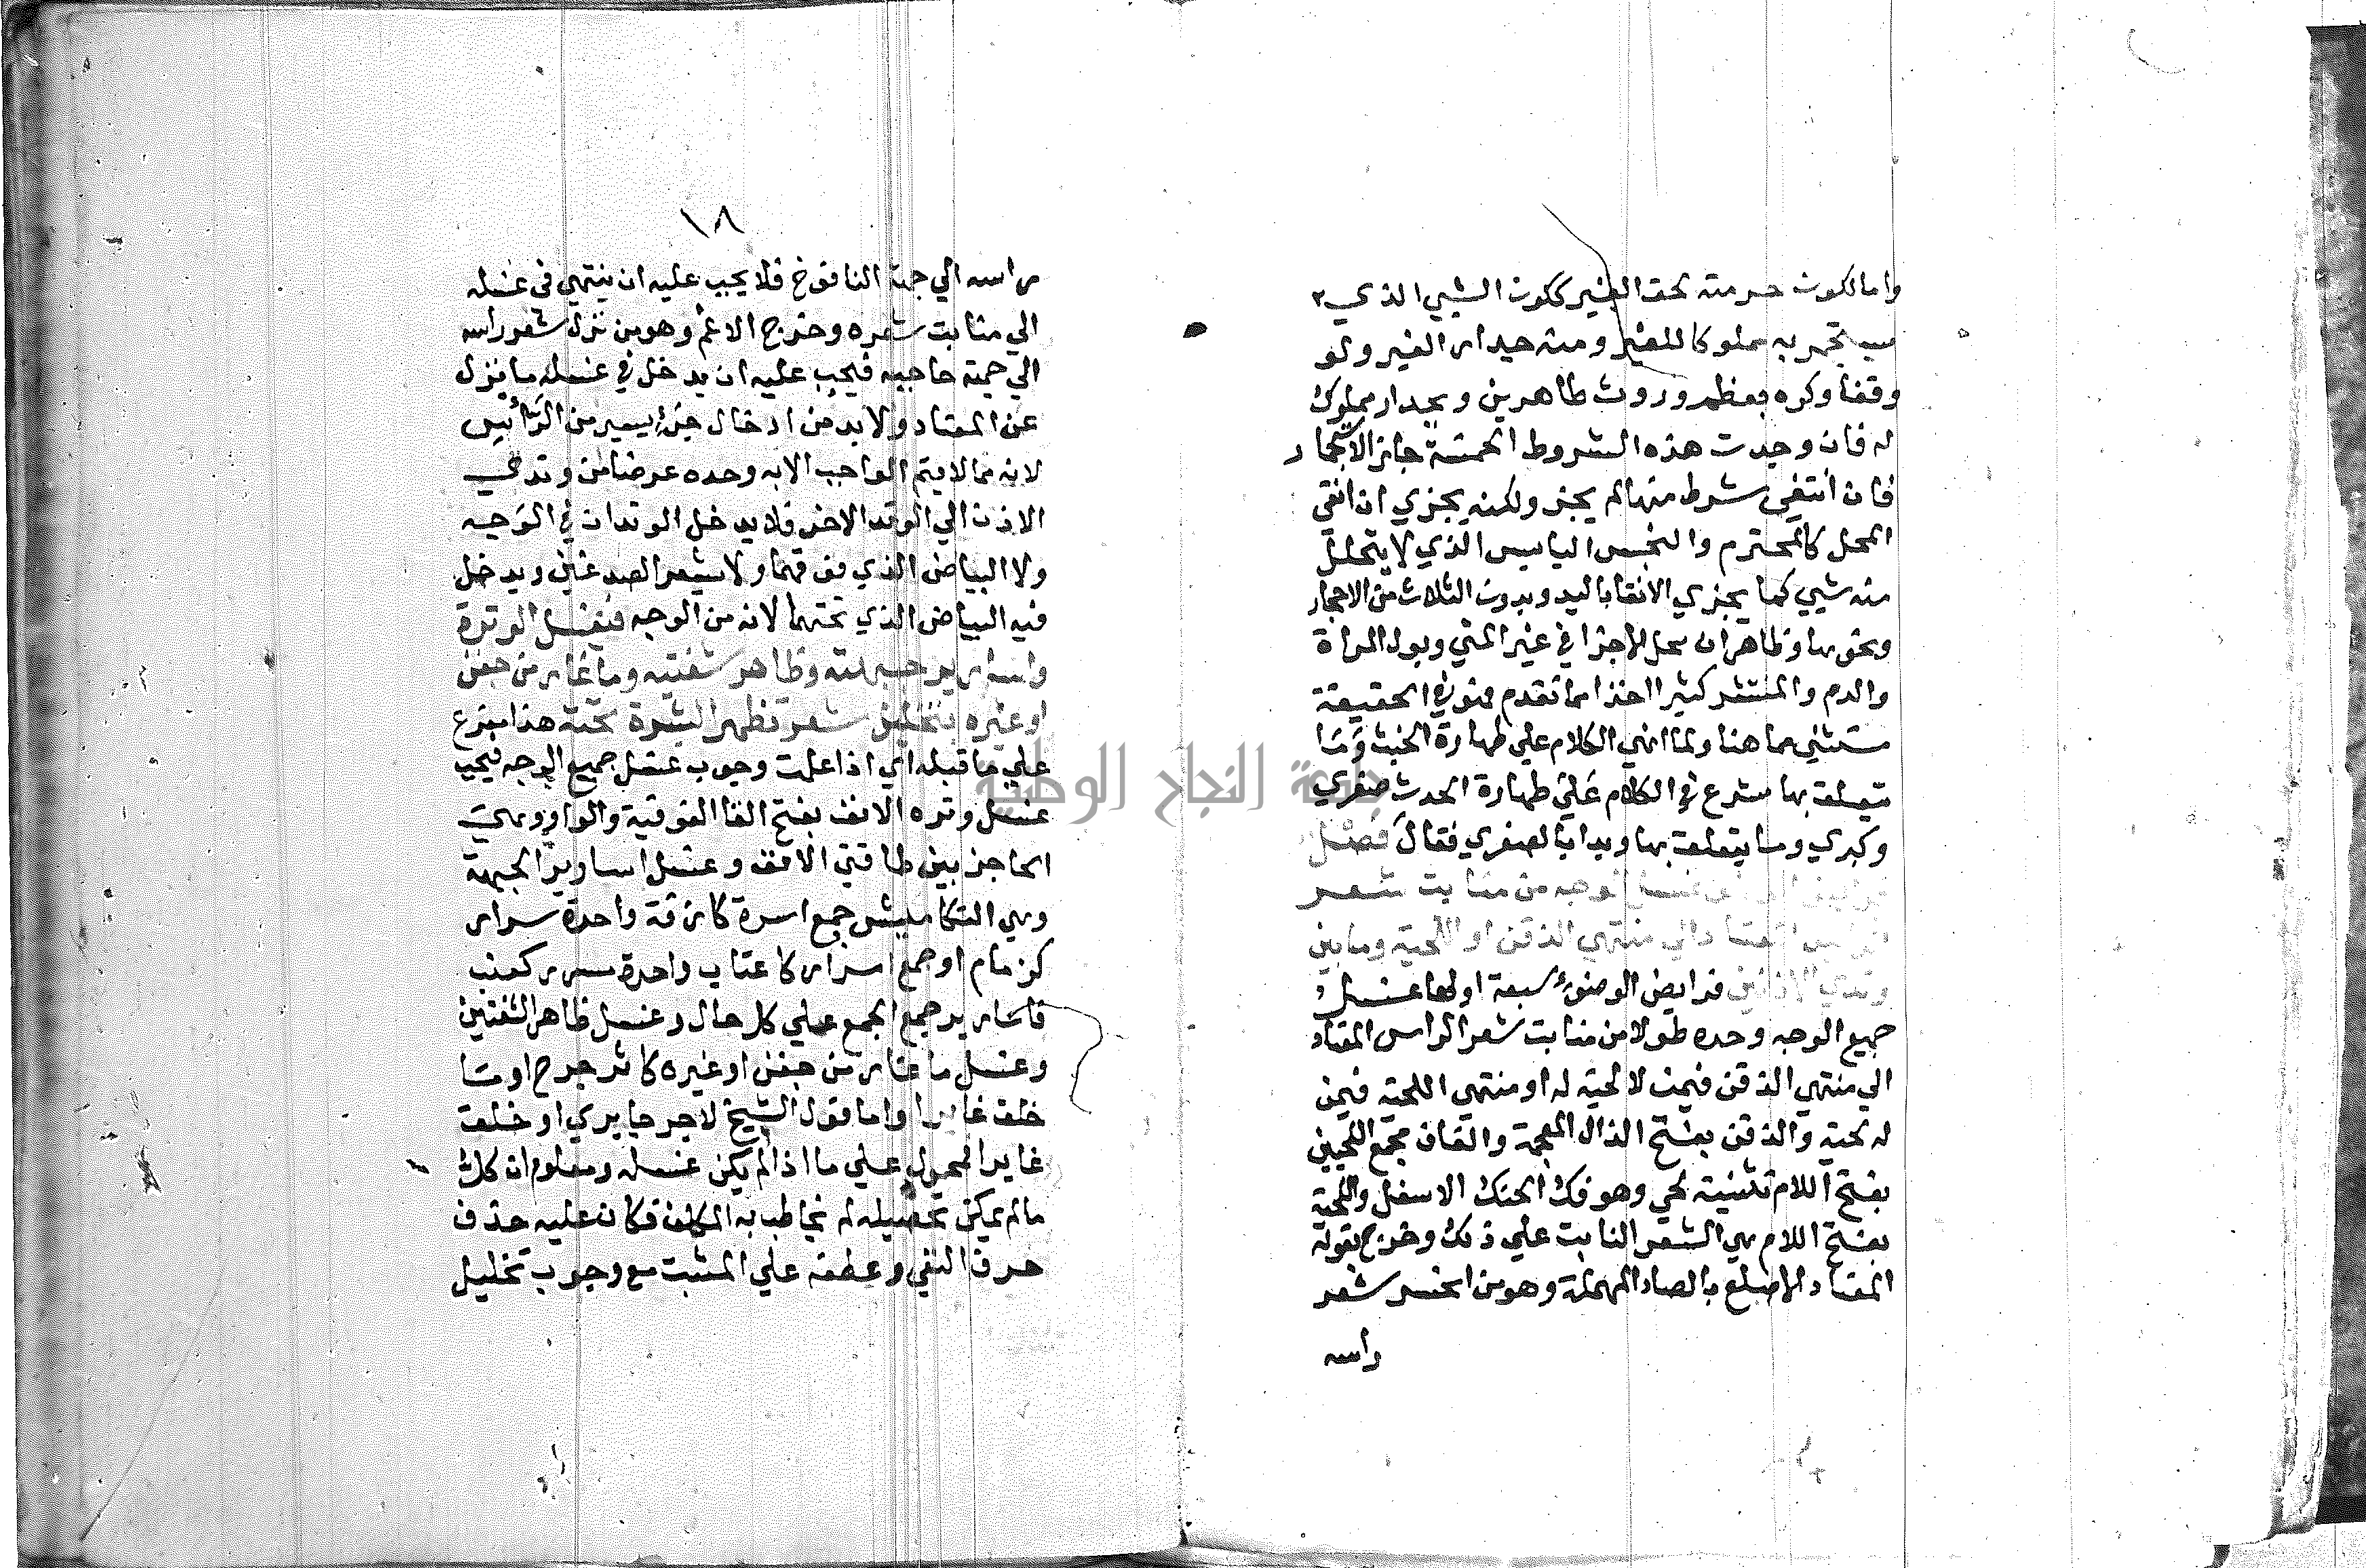 واما لكون حرمته لحق الغير ككون الشيي الذي
يستجمر به مملوكا للغير ومنه جدار الغير ولو
وقفا وكره بعظم وروث طاهرين وبجدار مملوك
له فان وجدت هذه الشروط الخمسة جاز الاستجمار
فان انتفي شرط منها لم يجز ولكنه يجزي ان انقي
المحل كالمحترم والنجس اليابس الذي لا يتحلل
منه شيي كما يجزي الانقا باليد وبدون الثلاث من الاحجار
ونحوها وظاهر ان محل الاجزا في غير المني وبول المراة
والدم والمنتشر كثيرا اخذا مما تقدم فهو في الحقيقة
مستثني مما هنا ولما انهي الكلام علي طهارة الخبث وما
يتعلق بها شرع في الكلام علي طهارة الحدث صغري
وكبري وما يتعلق بها وبدا بالصغري فقال فصل
غسل الوجه من منابت شعر
الراس المعتاد الي منتهي الذقن او اللحية وما بين
وتدي الاذنين فرايض الوضوء سبعة اولها غسل
جميع الوجه وحده طولا من منابت شعر الراس المعتاد
الي منتهي الذقن فيمن لا لحية له او منتهي اللحية فيمن
له لحية والذقن بفتح الذال المعجمة والقاف مجمع اللحيين
بفتح اللام تثنية لحي وهو فك الحنك الاسفل واللحية
بفتح اللام هي الشعر النابت علي ذلك وخرج بقوله
المعتاد الاصلع بالصاد المهملة وهو من انحسر شعر
راسه
١٨
راسه الي جهة النافوخ فلا يجب عليه ان ينتهي في غسله
الي منابت شعره وخرج الاغم وهو من نزل شعر راسه
الي جهة حاجبيه فيجب عليه ان يدخل في غسله ما نزل
عن المعتاد ولا بد من ادخال جزء يسير من الراس
لانه مما لا يتم الواجب الا به وحده عرضا من وتدي
الاذن الي الوتد الاخر فلا يدخل الوتدان في الوجه
ولا البياض الذي فوقهما ولا شعر الصدغين ويدخل
فيه البياض الذي تحتهما لانه من الوجه فيغسل الوترة
واسارير جبهته وظاهر شفتيه وما غار من جفن
او غيره بتخليل شعر تظهر البشرة تحته هذا مفرع
علي ما قبله اي اذا علمت وجوب غسل جميع الوجه فيجب
غسل وتره الانف بفتح التا الفوقية والواو وهي
الحاجز بين طاقتي الانف وغسل اسارير الجبهة
وهي التكاميش جمع اسرة كازمة واحدة سرار
كزمام او جمع اسرار كاعناب واحده سرر كعنب
فاسارير جمع الجمع علي كل حال وغسل ظاهر الشفتين
وغسل ما غار من جفن او غيره كاثر جرح او ما
خلق غايرا واما قول الشيخ لا جرحا بري او خلق
غايرا لمحمول علي ما اذا لم يكن غسله ومعلوم ان كل
ما لم يمكن تحصيله لم يخاطب به المكلف فكان عليه حذف
حرف النفي وعطفه علي المثبت مع وجوب تخليل
جامعة النجاح الوطنية